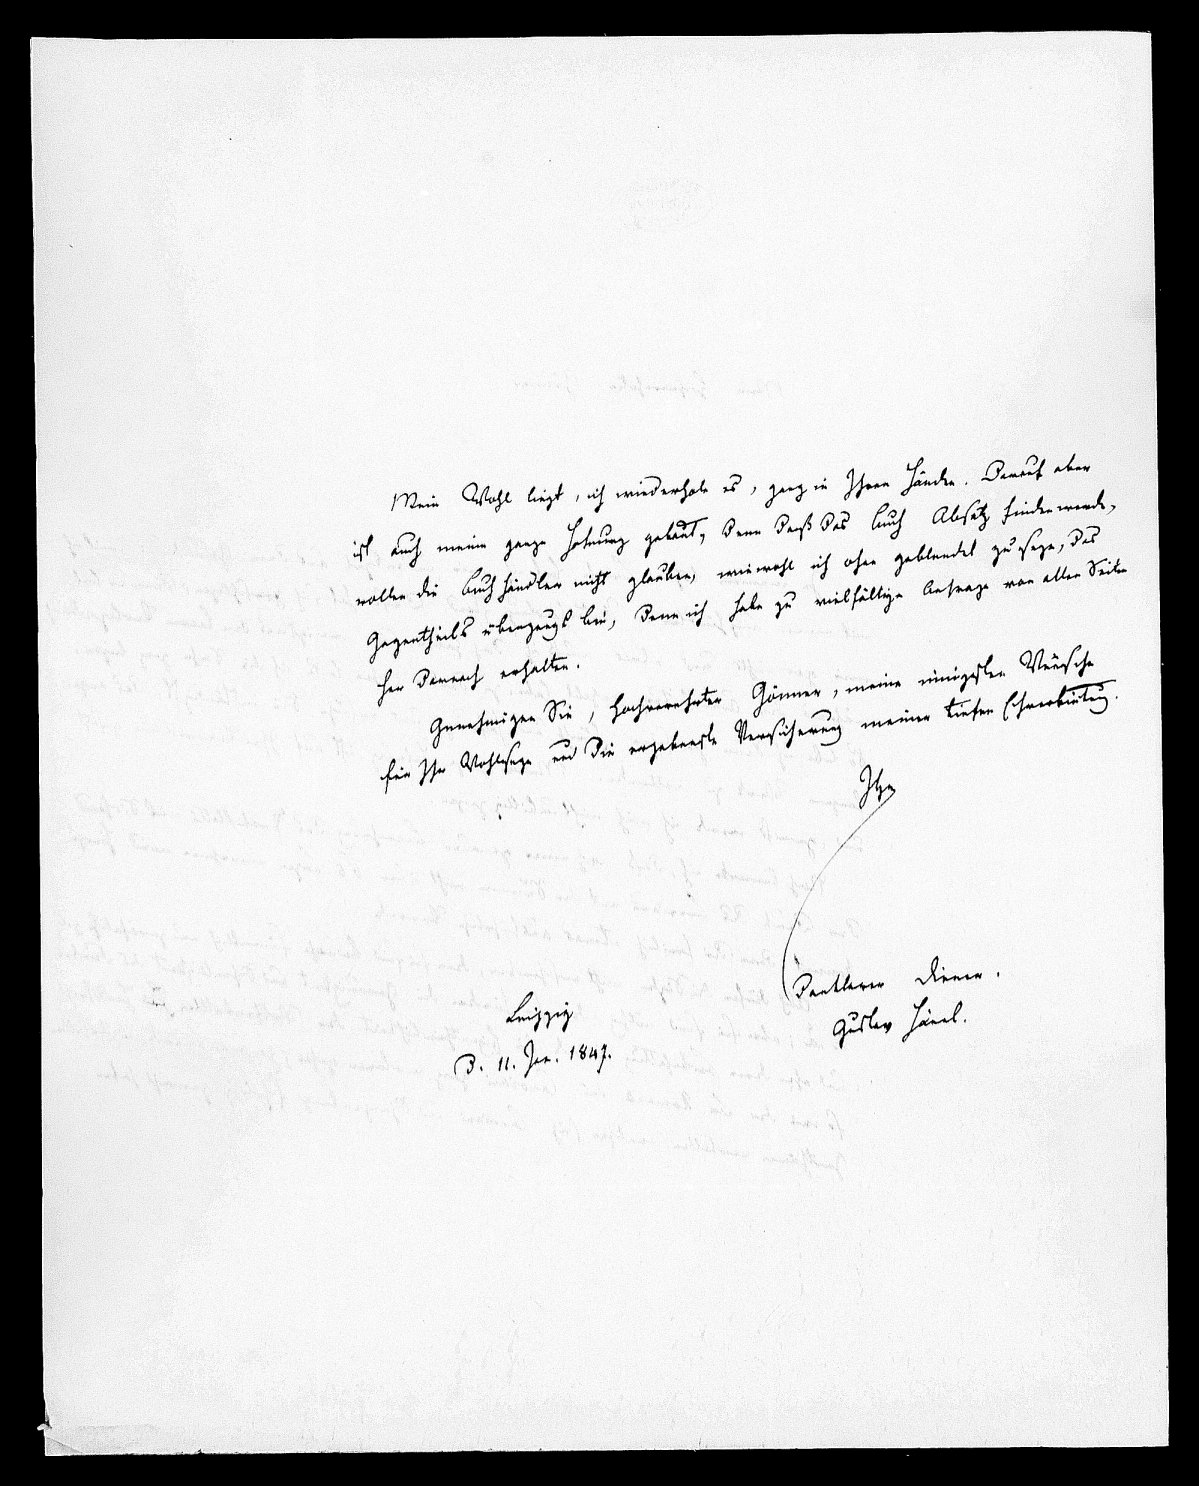 Mein Wohl liegt, ich wiederhole es, ganz in Ihren Händen. Darauf aber
ist auch meine ganze Hofnung gebaut, denn daß das Buch Absatz finden werde,
wollen die Buchhändler nicht glauben, wiewohl ich ohne geblendet zu seyn, des
Gegentheils überzeugt bin, denn ich habe zu vielfältige Anfragen von allen Seiten
her darnach erhalten.
Genehmigen Sie, hochverehrter Gönner, meine innigsten Wünsche
für Ihr Wohlseyn und die ergebenste Versicherung meiner tiefen Ehrerbietung.
Ihr
dankbarer Diener.
Gustav Hänel.
Leipzig
d. 11. Jan. 1847.